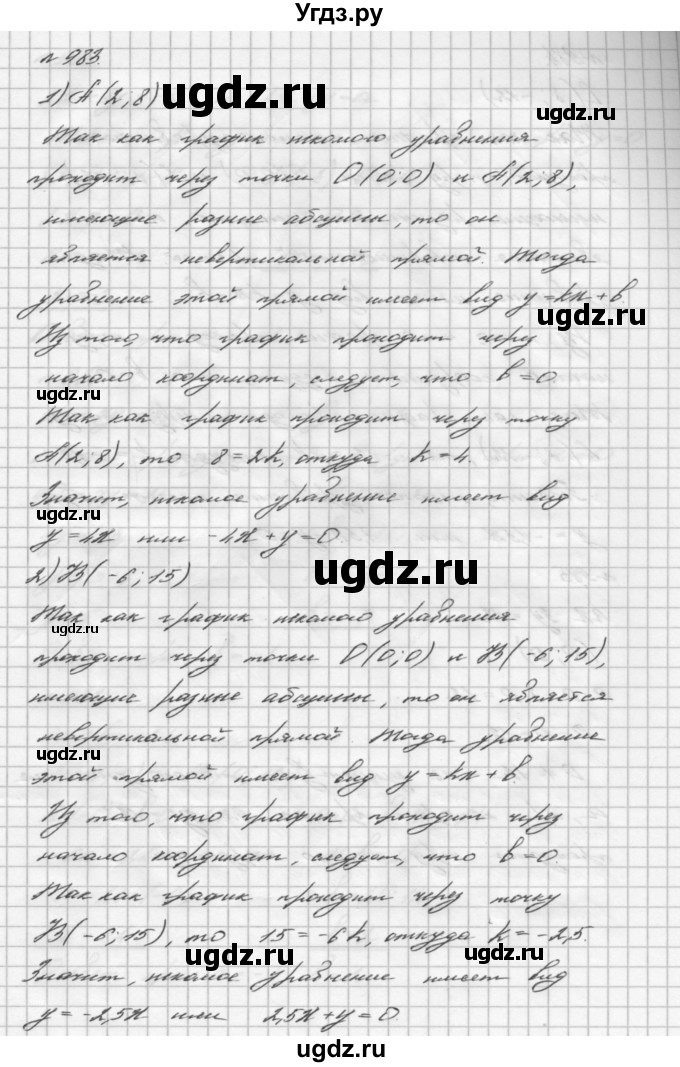 Угдз.ру
№ 983.
1) А(2; 8)
ugdz.ru
Так как график искомого уравнения
проходит через точки О(0; 0) и А(2; 8),
имеющие разные абсциссы, то он
является невертикальной прямой. Тогда
уравнение этой прямой имеет вид y = kx + b.
ugdz.ru
Из того, что график проходит через
начало координат, следует, что b = 0.
Так как график проходит через точку
А(2; 8), то 8 = 2k, откуда k = 4.
Значит, искомое уравнение имеет вид
y = 4x или -4x + y = 0.
ugdz.ru
2) В(-6; 15)
Так как график искомого уравнения
ugdz.ru
проходит через точки О(0; 0) и В(-6; 15),
имеющие разные абсциссы, то он является
невертикальной прямой. Тогда уравнение
ugdz.ru
этой прямой имеет вид y = kx + b.
Из того, что график проходит через
начало координат, следует, что b = 0.
Так как график проходит через точку
В(-6; 15), то 15 = -6k, откуда k = -2,5.
ugdz.ru
Значит, искомое уравнение имеет вид
y = -2,5x или 2,5x + y = 0.
ugdz.ru